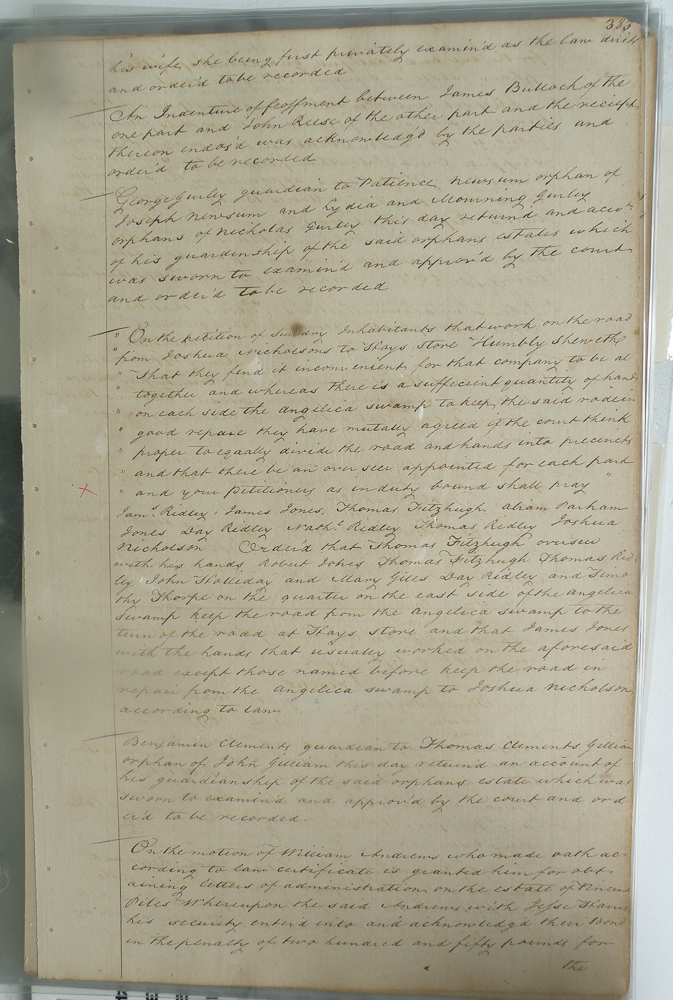 385
his wife, she being first privately examin'd as the law directs
and order'd to be recorded
An Indenture of feoffment between James Bulloch of the
one part and John Reese of the other part and the receipt
thereon endors'd was acknowledg'd by the parties and
order'd to be recorded
George Gurley guardian to Patience Newsum orphan of
Joseph Newsum and Lydia and Mourning Gurley
orphans of Nicholas Gurley this day return'd and acco.t
of his guardianship of the said orphans estates which
was sworn to examin'd and approv'd by the court
and order'd to be recorded
" On the petition of Sundry Inhabitants that work on the road
" from Joshua Nicholsons to Hays store Humbly Sheweth
" That they find it inconvenient for that company to be al
" together and whereas there is a suffecient quantity of hands
" on each side the angelica swamp to keep the said rode in
" good repair they have mutally agreed if the court think
" proper to equally divide the road and hands into precincts
" and that there be an overseer appointed for each part
" and your Petitioners as in duty bound shall pray "
Jam.s Ridley, James Jones, Thomas Fitzhugh, abram Parham
Jones Day Ridley Nath.l Ridley Thomas Ridley Joshua
Nicholson Order'd that Thomas Fitzhugh overseer
with his hands, Robert Jones Thomas Fitzhugh Thomas Rid
ley, John Holleday and Mary Giles Day Ridley and Timo
thy Thorpe on the quarter on the east side of the angelica
Swamp keep the road from the angelica swamp to the
turn of the road at Hays store and that James Jones
with the hands that usually worked on the aforesaid
road except those named before keep the road in
repair from the angelica swamp to Joshua Nicholson
according to law
Benjamin Clements guardian to Thomas Clements Gilliam
orphan of John Gilliam this day return'd an account of
his guardianship of the said orphans estate which was
sworn to examin'd and approv'd by the court and ord
er'd to be recorded.
On the motion of William Andrews who made oath ac-
cording to law certificate is granted him for obt-
aining letters of administration on the estate of
Whereupon the said Andrews with Jesse
his security enter'd into and acknowledg'd their Bond
in the penalty of two hundred and fifty pounds for
the